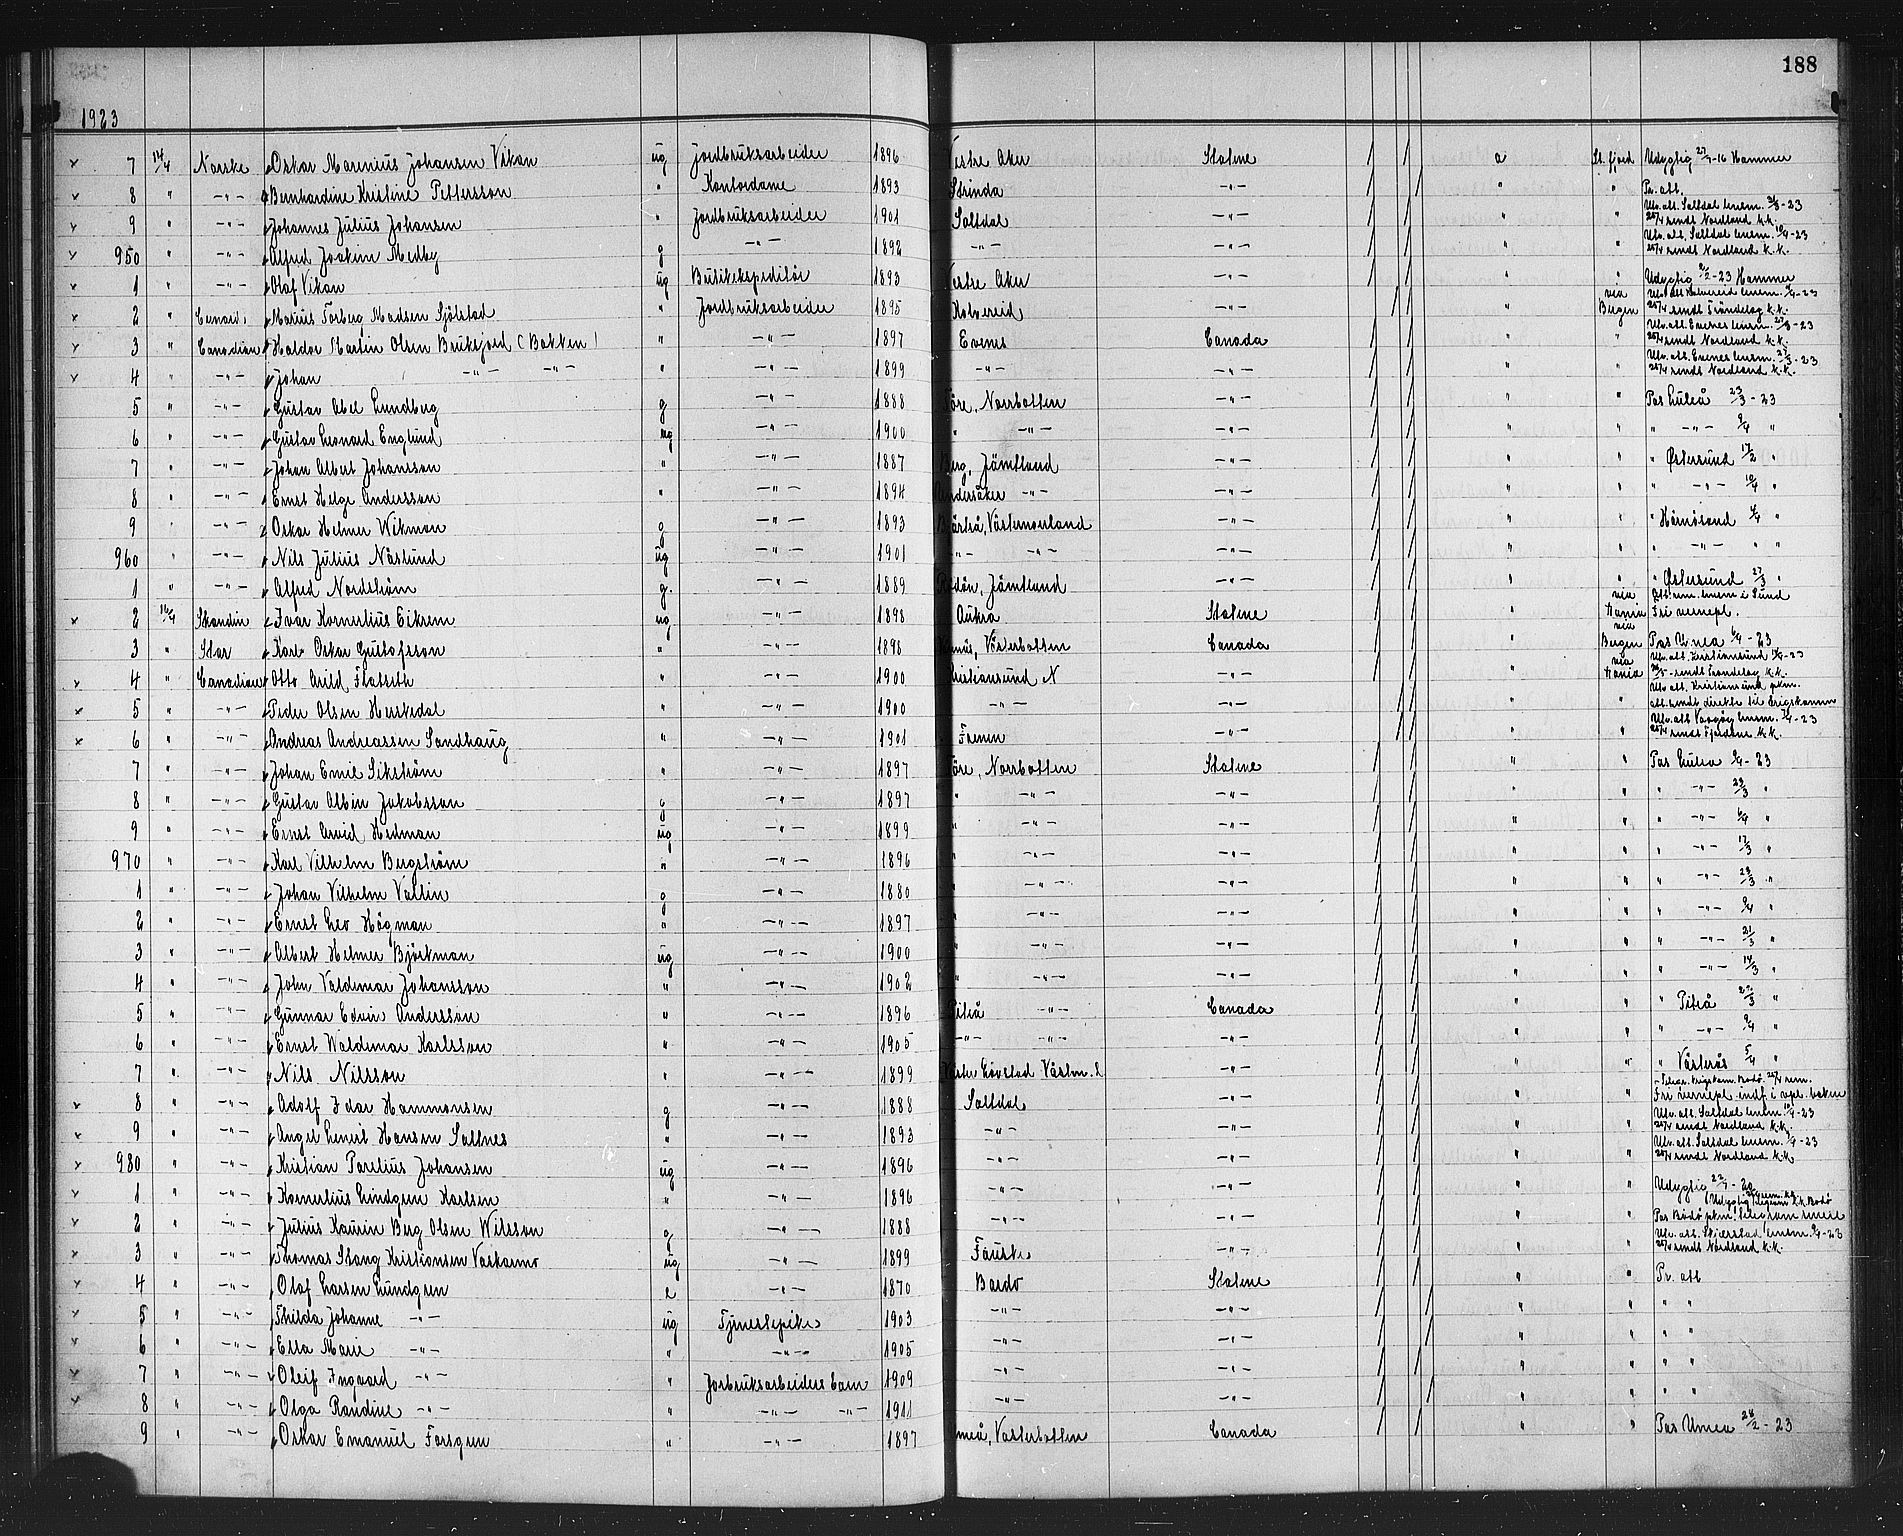 188
1923
× 7 14/4 Norske Oskar Marenius Johansen Vikan ug jordbruksarbeider 1896 Vestre Aker Statene a St. fjord Udygtig 27/7-16 Hammer
× 8 " -"- Bernhardine Kristine Pettersson " Kontordame 1893 Strinda -"- " " Pr. att.
× 9 " -"- Johannes Julius Johansen " Jordbruksarbeider 1901 Saltdal -"- " " Utv. att. Saltdal lensm. -23 25/4 sendt Nordland k.k.
× 950 " -"- Alfred Joakim Medby g -"- 1892 -"- -"- " " Utv. att. Saltdal lensm. 10/4-23 25/4 sendt Nordland k.k.
× 1 " -"- Olaf Vikan ug Butikekspeditør 1893 Vestre Aker -"- " " Udygtig -23 Hammer
× 2 " Cunard. Marius Torberg Madsen Sjölstad " Jordbruksarbeider 1895 Kolvereid -"- " via Bergen Utv. att. Kolvereid lensm. -23 25/4 sendt Trøndelag k.k.
× 3 " Canadian Haldor Martin Olsen Brukejord (Bakken) " -"- 1897 Evenes Canada " " Utv. att. Evenes lensm. -23 25/4 sendt Nordland k.k.
× 4 " -"- Johan -"- -"- " -"- 1899 -"- -"- " " Utv. att. Evenes lensm. -23 25/4 sendt Nordland k.k.
5 " -"- Gustav Abel Lundberg g -"- 1888 Töre, Norrbotten -"- " " Pas Luleå 23/3-23
6 " -"- Gustav Leonard Englund ug -"- 1900 " -"- -"- " " " -"- 9/4 "
7 " -"- Johan Albert Johansson " -"- 1887 Berg, Jämtland -"- " " " Østersund 17/2 "
8 " -"- Ernst Helge Andersson " -"- 1894 Undersåker -"- -"- " " " -"- 10/4 "
9 " -"- Oskar Helmer Wikman g -"- 1893 Västernorland -"- " " " Härnösand 4/4 "
960 " -"- Nils Julius Näslund ug -"- 1901 -"- -"- -"- " " " -"- " "
1 " -"- Alfred Nordström g. -"- 1889 Rödön, Jämtland -"- " " " Østersund 27/3 "
× 2 16/4 Skandin Ivar Kornelius Eikrem ug -"- 1898 Aukra Statene " via Hania Att. em. lensm i Sund Fri vernepl.
3 " Star Karl Oskar Gustafsson " -"- 1898 Västerbotten Canada " via Bergen Pas Umea 6/4-23
× 4 " Canadian Otto Arild Flatseth " -"- 1900 Kristiansund N -"- " via Hania Utv. att. Kristiansund -23 sendt Trøndelag k.k.
× 5 " -"- Peder Olsen Herskedal " -"- 1900 -"- -"- " " Utv. att. Kristiansund pkm. att. sendt direkte til krigskomm
× 6 " -"- Andreas Andreassen Sandhaug " -"- 1901 Frænen -"- " " Utv. att. Vaagøy lensm. -23 25/4 sendt Fjordane k.k.
7 " -"- Johan Emil Sikström " -"- 1897 Töre, Norrbotten Statene " " Pas Lulea 6/4-23
8 " -"- Gustav Albin Jakobsson g -"- 1897 " -"- -"- " " " -"- 23/3 "
9 " -"- Ernst Arvid Hedman ug -"- 1899 " -"- -"- " " " -"- 6/4 "
970 " -"- Karl Vilhelm Bergström " -"- 1896 " -"- -"- " " " -"- 17/3 "
1 " -"- Johan Vilhelm Vallin g -"- 1880 " -"- -"- " " " -"- 23/3 "
2 " -"- Ernst Leo Högman " -"- 1897 " -"- -"- " " " -"- 9/4 "
3 " -"- Albert Helmer Björkman ug -"- 1900 " -"- -"- " " " -"- 21/3 "
4 " -"- John Valdemar Johansson " -"- 1902 " -"- -"- " " " -"- 14/3 "
5 " -"- Gunnar Edvin Andersson " -"- 1896 Piteå -"- Canada " " " Piteå 27/3 "
6 " -"- Ernst Waldemar Karlsson " -"- 1905 -"- -"- -"- " " " -"- 9/4 "
7 " -"- Nils Nilsson " -"- 1899 Västm. L -"- " " " Västerås 5/4 "
× 8 " -"- Adolf Idar Hammonsen g -"- 1888 Saltdal -"- " " Krigskom. Bodø 25/4 Fri vernepl. indf. i vpl. boken
× 9 " -"- Angel Leneit Hansen Saltnes " -"- 1893 -"- -"- " " Utv. att. Saltdal lensm. 10/4-23 25/4 sendt Nordland k.k.
× 980 " -"- Kristian Parelius Johansen ug -"- 1896 -"- -"- " " Utv. att. Saltdal lensm. -23 25/4 sendt Nordland k.k.
× 1 " -"- Kornelius Lindgren Karlsen " -"- 1896 -"- -"- " " Udygtig
× 2 " -"- Julius Kaurin Berg Olsen Wilsson g -"- 1888 -"- -"- " " Pas Bodø pkm. telegram
× 3 " -"- Thomas Stang Kristiansen Vaskarmo ug -"- 1899 Fauske -"- " " Utv. att. Skjerstad lensm. -23 25/4 sendt Nordland k.k.
× 4 " -"- Olaf Larsen Lundgren e -"- 1870 Bardo Statene " " Pr. att
× 5 " -"- Thilda Johanne -"- ug Tjenestepike 1903 -"- -"- " " " "
× 6 " -"- Ella Marie -"- " -"- 1905 -"- -"- " " " "
× 7 " -"- Oleif Ingvard -"- " Jorbruksarbeiders barn 1909 -"- -"- " " " "
× 8 " -"- Olga Randine -"- " -"- -"- 1911 -"- -"- " " " "
9 " -"- Oskar Emanuel Forsgren " -"- 1897 Umeå, Västerbotten Canada " " Pas Umea 28/2-23